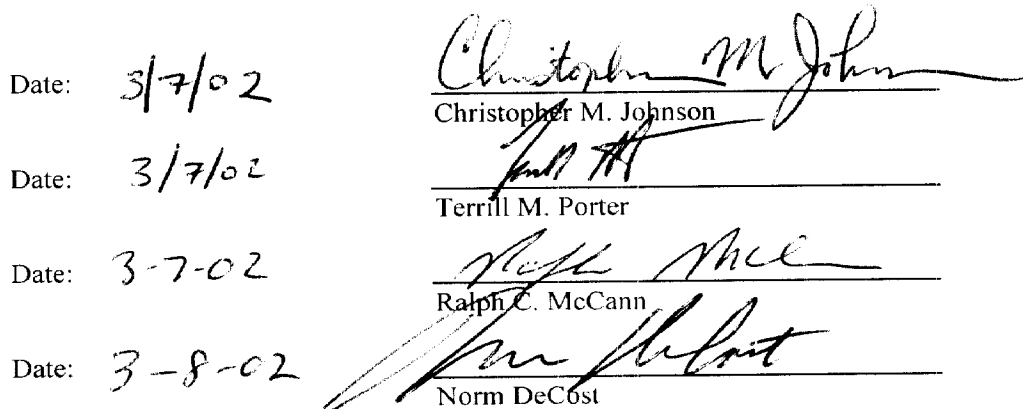 Date: 3/7/02 Christopher M. Johnson
Christopher M. Johnson
Date: 3/7/02
Terrill M. Porter
Date: 3-7-02 Ralph McCann
Ralph C. McCann
Date: 3-8-02 Norm DeCost
Norm DeCost